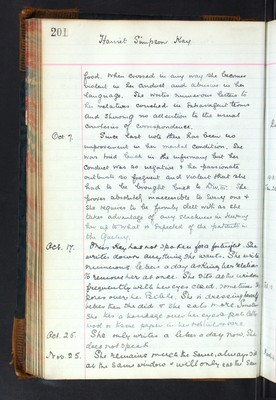 201
Harriet Simpson Hay
food. When crossed in any way she becomes
violent in her conduct and abusive in her
language. She writes numerous letters to
her relatives couched in extravagant terms
and showing no attention to the usual
courtesies of correspondence.
Oct 7. Since last note there has been no
improvement in her mental condition. She
was sent back to the infirmary but her
conduct was so negative & her passionate
outbursts so frequent and violent that she
had to be brought back to She
proves absolutely inaccessible to any one &
she requires to be firmly dealt with as she
takes advantage of any slackness in
her up to what is expected of the patients in
the Gallery.
Oct. 17. Miss Hay has not spoken for a fortnight. She
writes down anything she wants. She writes
numerous letters a day asking her
to remove her at once. She sits at the window
frequently with her eyes closed. Sometimes she
She is dressing
better than she did & she eats more.
She has a handkerchief over her eyes &
wool or tissue paper in her nostrils
Oct. 25. She only writes a letter a day now. She
does not speak.
Nov. 25. She remains much the same, always sits
at the same window & will only eat the same